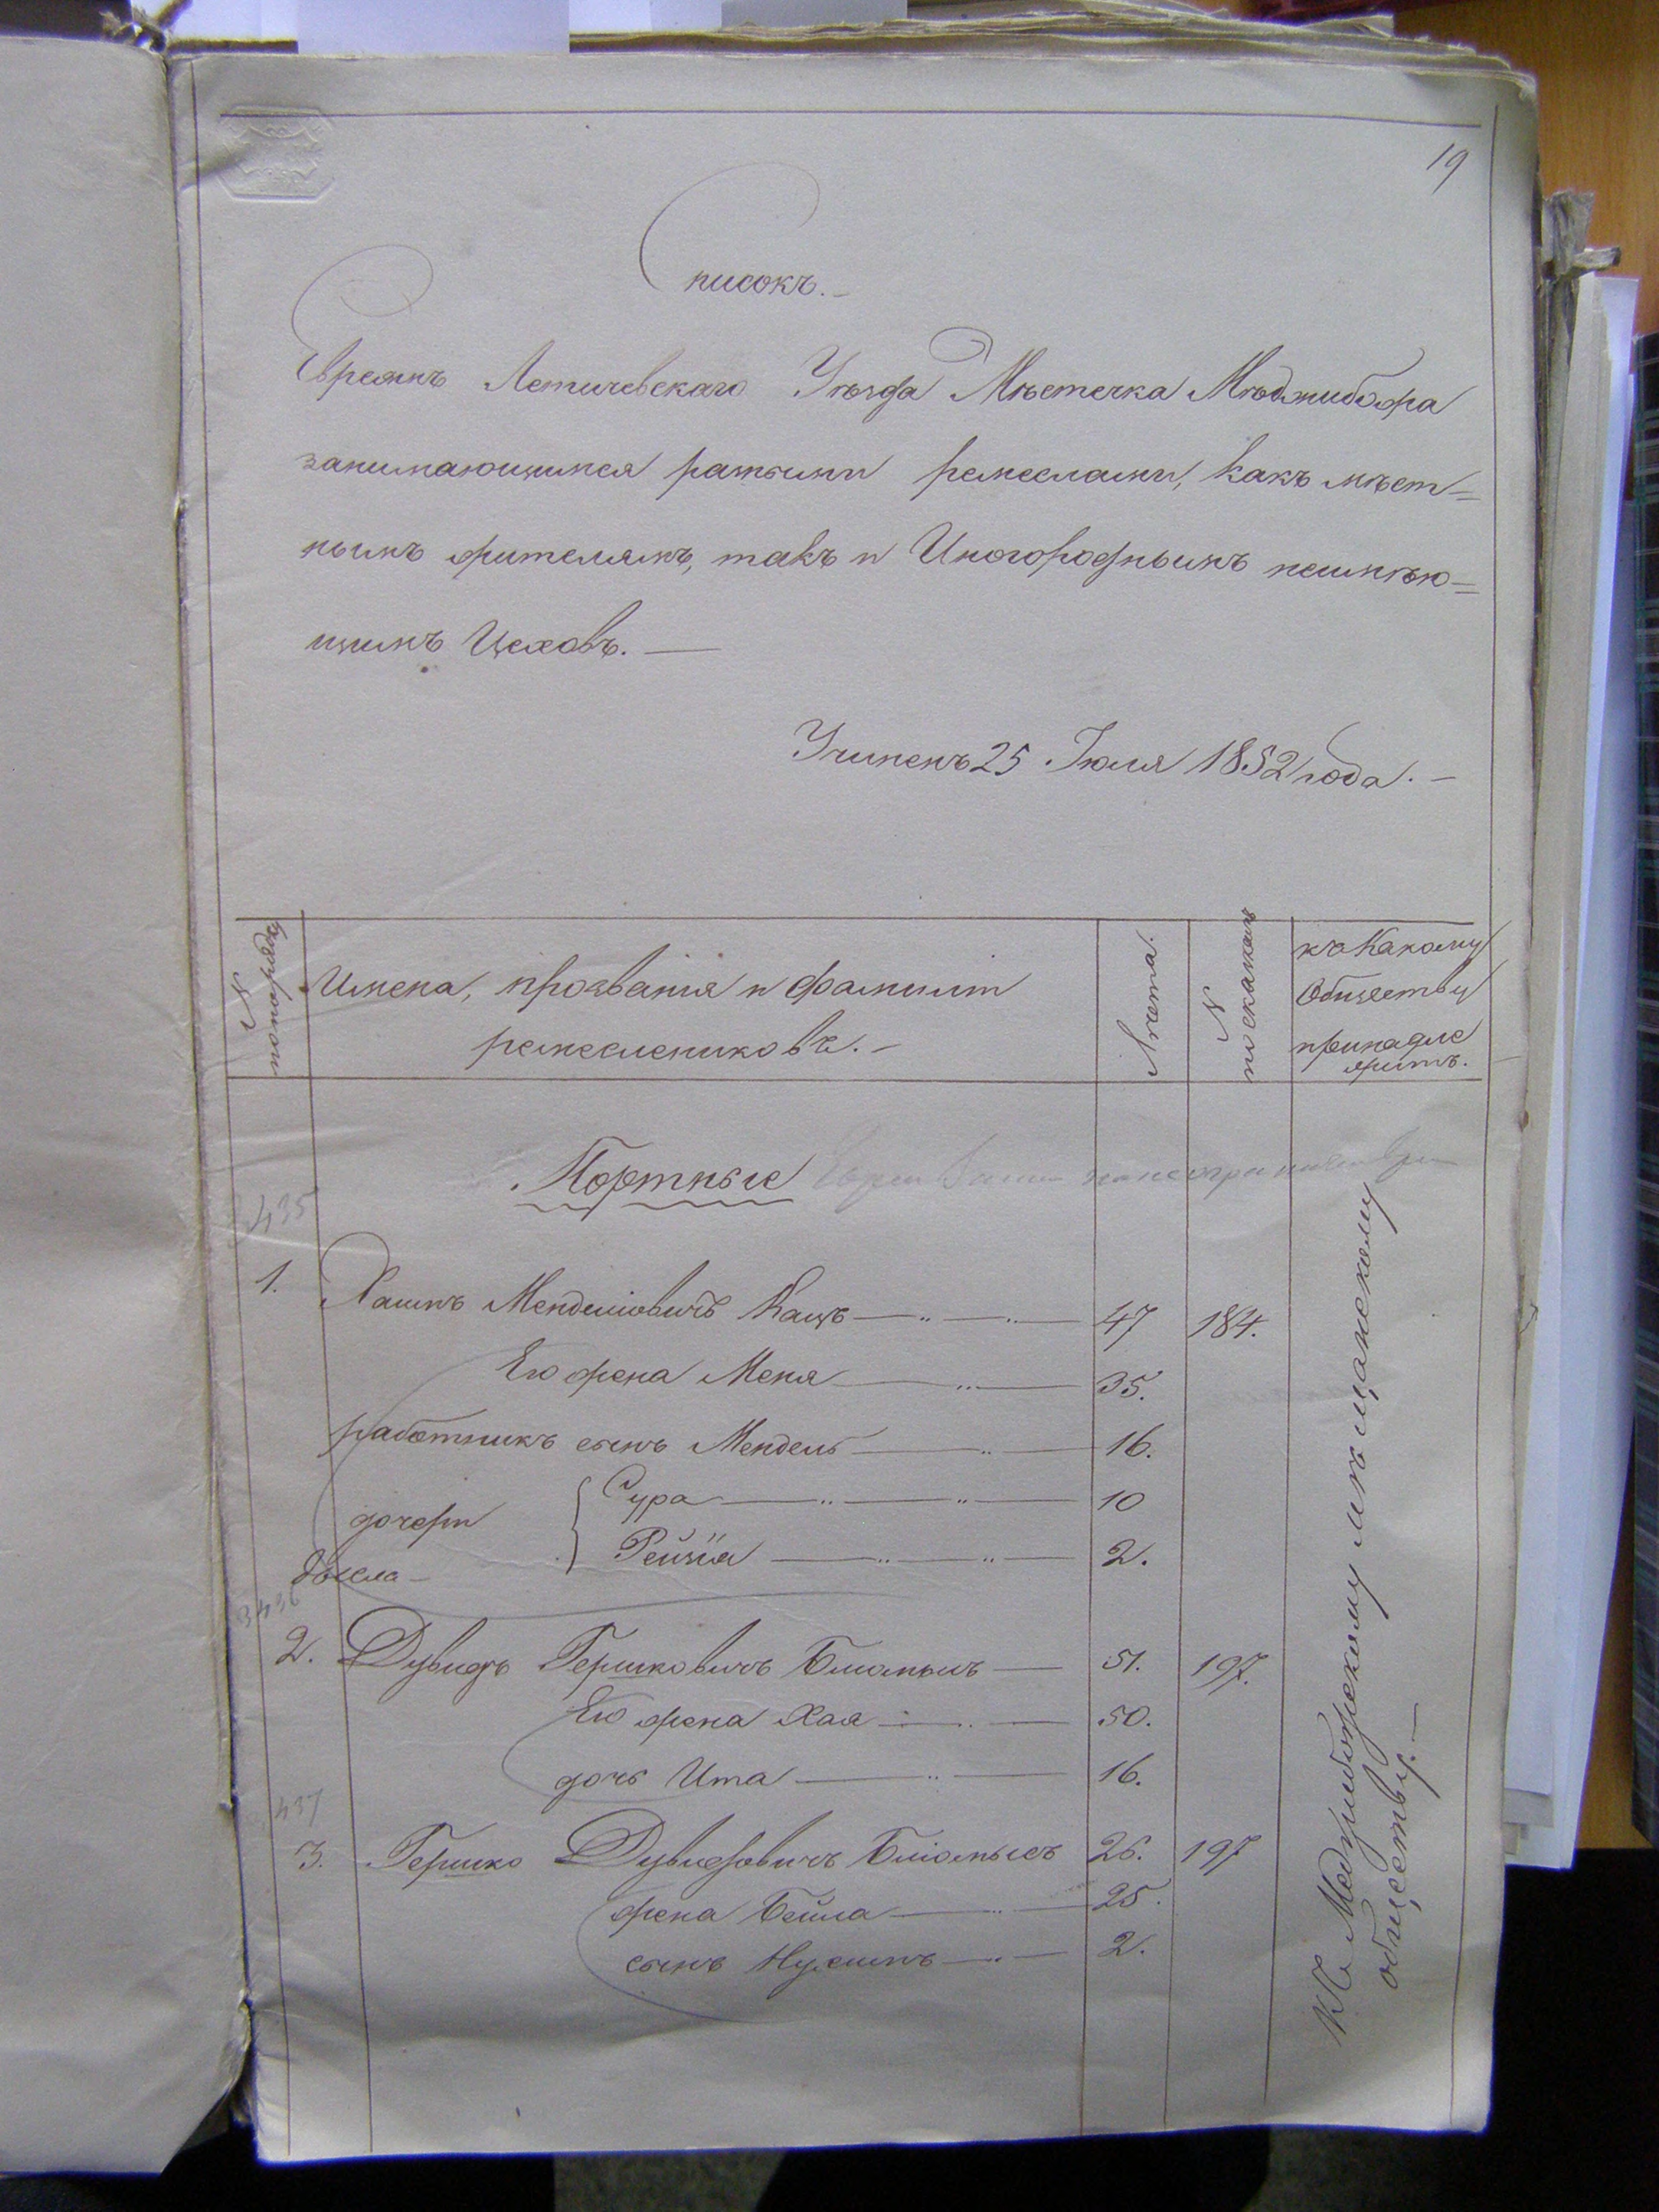 19
Списокъ.
Евреямъ Летичевскаго Уѣзда Мѣстечка Мѣджибожа
занимающимся разными ремеслами, какъ мѣст=
нымъ жителямъ, такъ и Иногороднымъ неимѣю=
щимъ Цеховъ. —
Учиненъ 25 Іюля 1852 года. —
N по порядку
Имена, прозванія и фамиліи
ремеслениковъ. —
Лѣта.
N по сказкамъ
къ Какому
Обществу
принадле
житъ.
Портные
435
1. Хаимъ Менделіовичъ Кацъ 47 184.
Его жена Меня 35.
работникъ сынъ Мендель 16.
дочери Сура 10
Рейзя 2.
2. Дувидъ Гершковичъ 51. 197.
Его жена Хая 50.
дочь Ита 16.
437
3. Гершко Дувидовичъ 26. 197
жена Бейла 25.
сынъ Нухимъ 2.
Къ Меджибожскому мѣщанскому
обществу. —